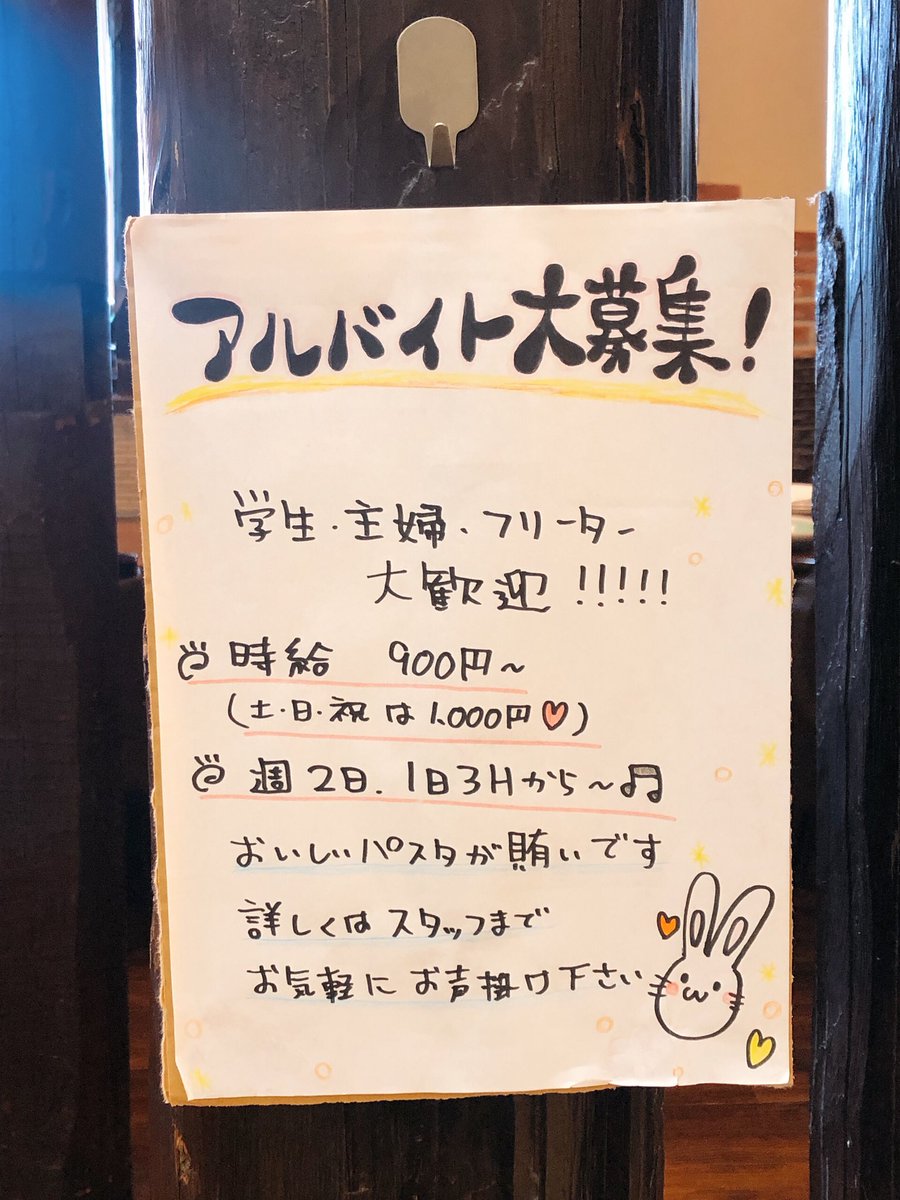 アルバイト大募集!
学生・主婦・フリーター
大歓迎!!!!!
時給 900円～
(土・日・祝は1,000円♡)
週2日、1日3Hから～♫
おいしいパスタが賄いです
詳しくはスタッフまで
お気軽にお声掛け下さい